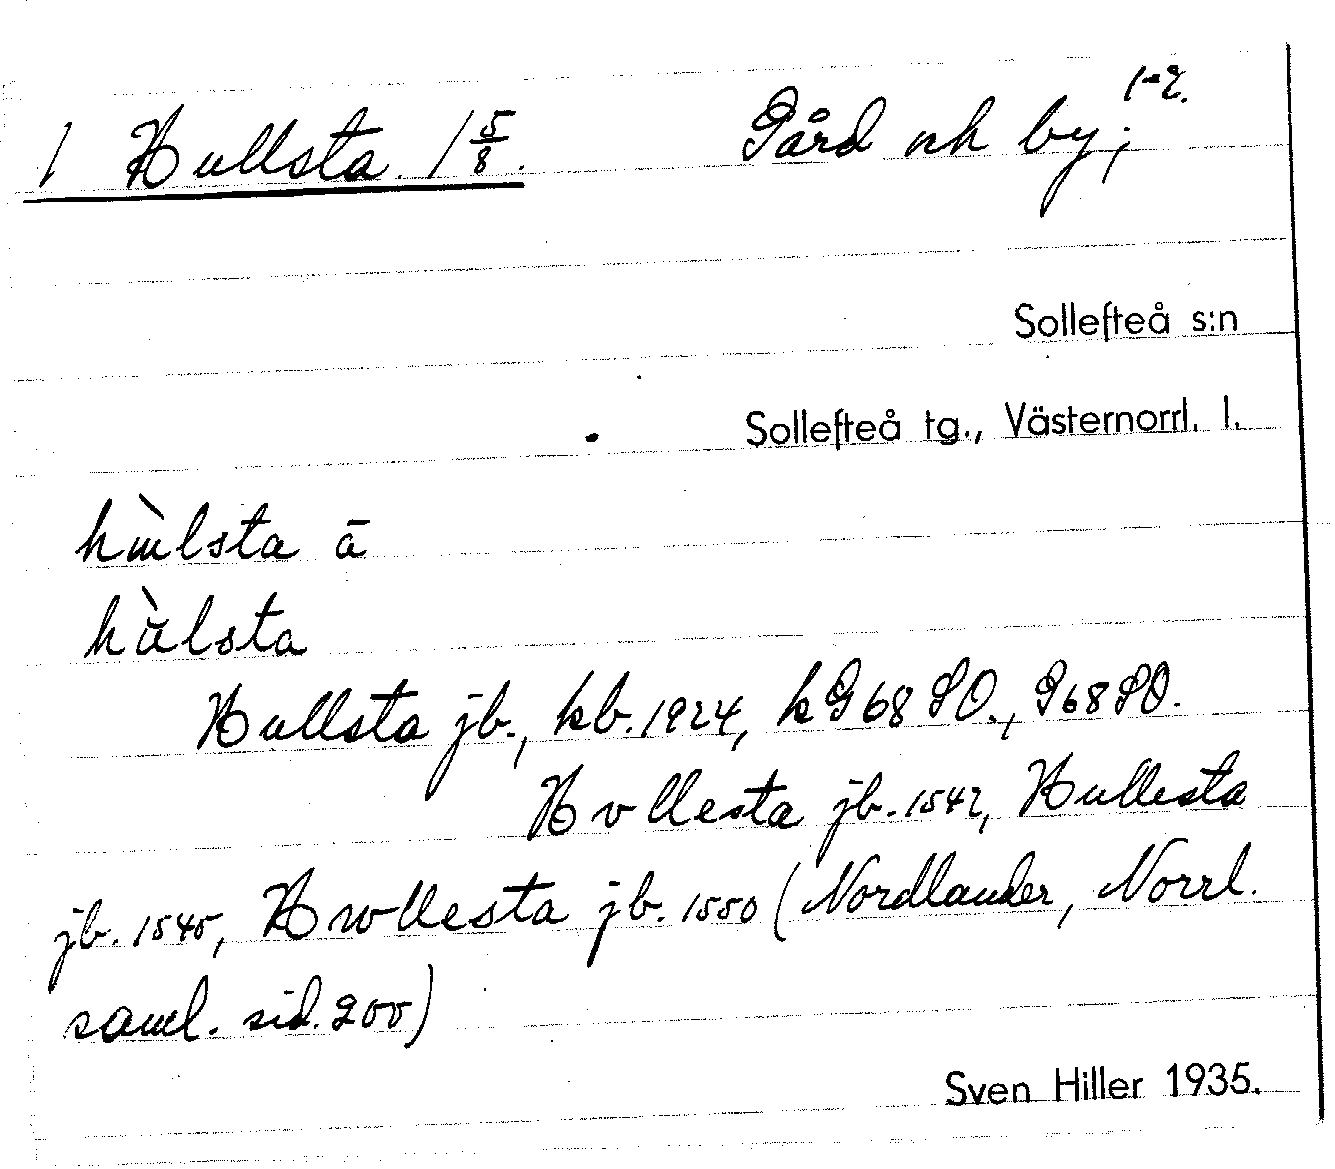 1 Hullsta 1 5/8. Gård och by; 1-2.
Sollefteå s:n
Sollefteå tg., Västernorrl. l.
hùlsta ā
hàlsta
Hullsta jb., kb. 1924, kG68SO., G68SO.
Hvllesta jb. 1542, Hullesta
jb. 1545, Hwllesta jb. 1550 (Nordlander, Norrl.
saml. sid. 200)
Sven Hiller 1935.